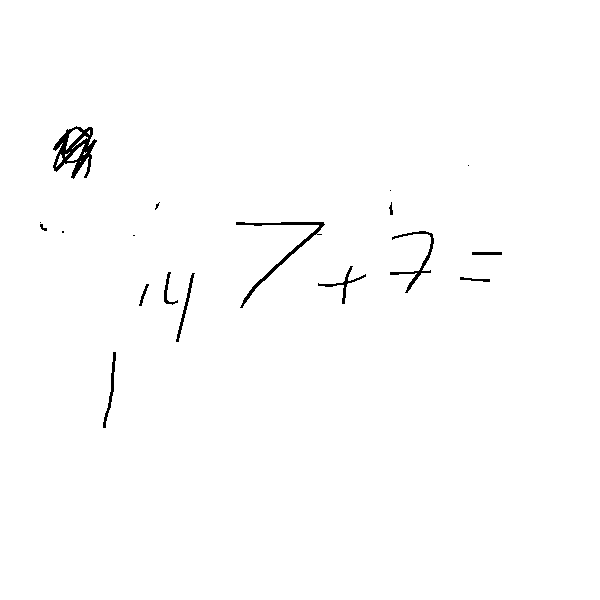 147+7=
1